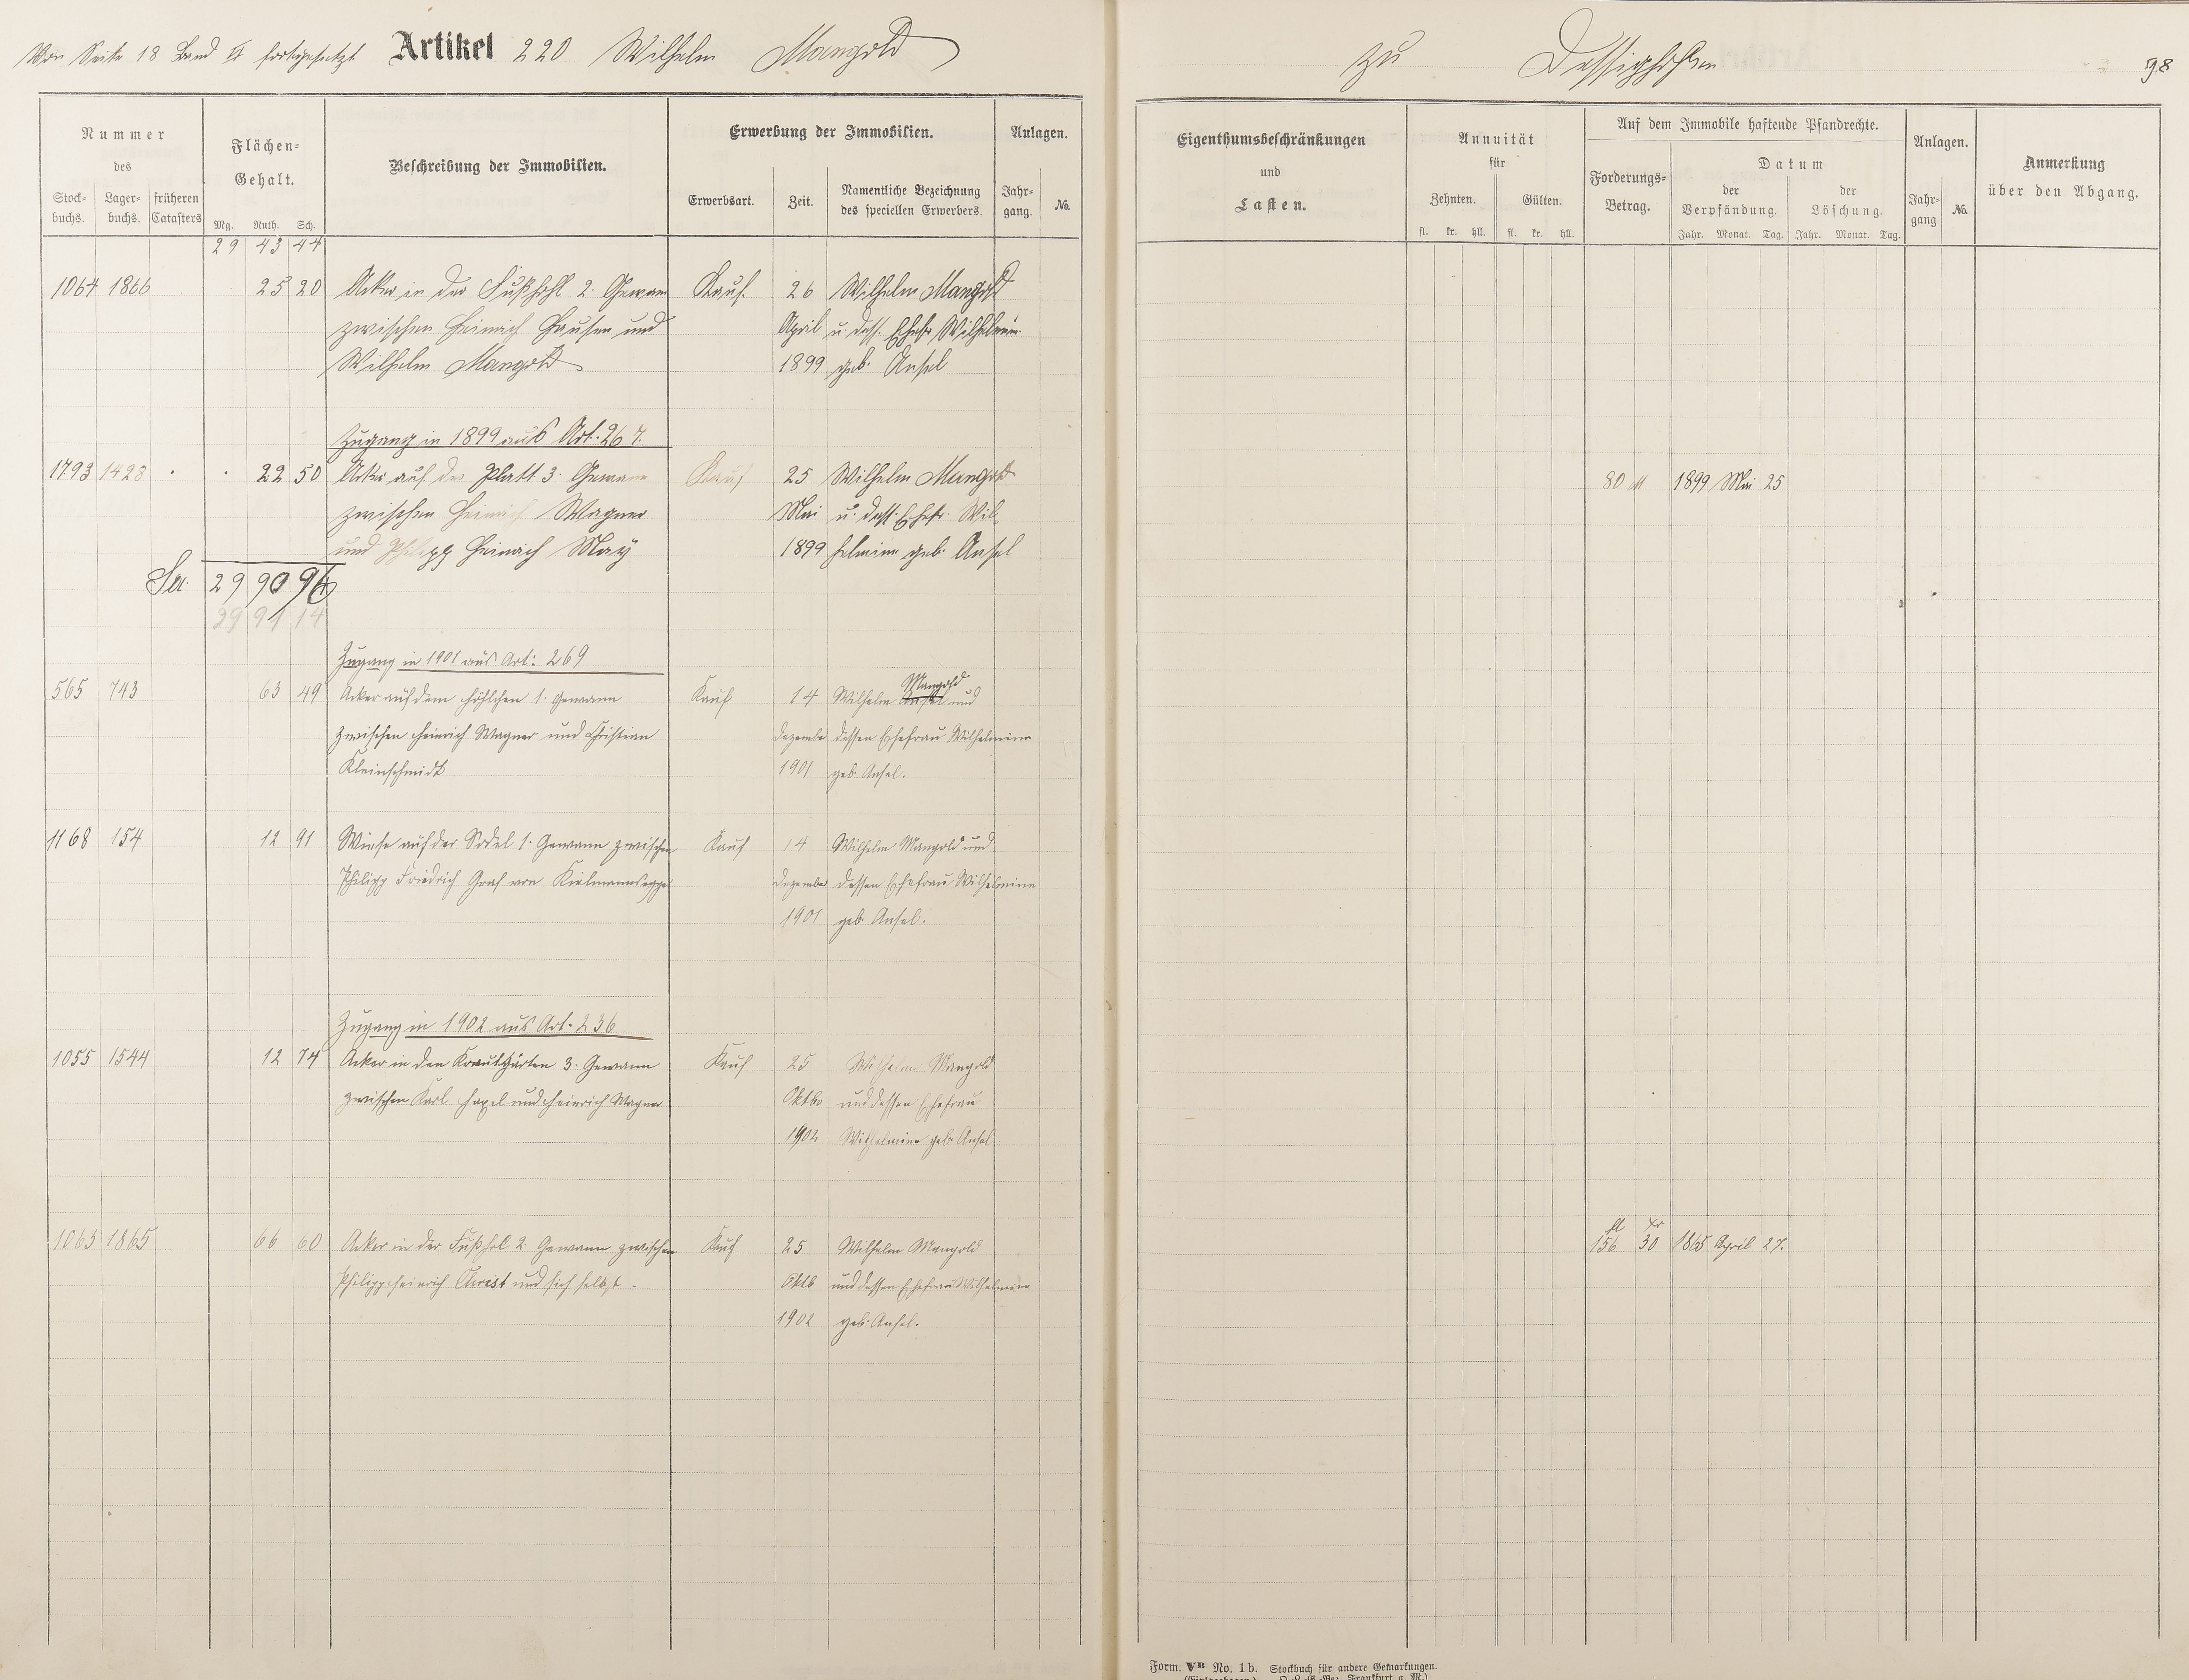 Von Seite 18 Band II fortgesetzt Artikel 220 Wilhelm Mangold
zu Dessighofen 98
Nummer des
Stock-buchs. Lager-buchs. früheren Catasters
Flächen-Gehalt.
Mg. Ruth. Sch.
Beschreibung der Immobilien.
Erwerbung der Immobilien.
Erwerbsart. Zeit. Namentliche Bezeichnung des speciellen Erwerbers.
Anlagen.
Jahr-gang. No.
Eigenthumsbeschränkungen
und
Lasten.
Annuität
für
Zehnten. Gülten.
fl. kr. hll. fl. kr. hll.
Auf dem Immobile haftende Pfandrechte.
Forderungs-Betrag.
Datum
der Verpfändung. der Löschung.
Jahr. Monat. Tag. Jahr. Monat. Tag.
Anlagen.
Jahr-gang No.
Anmerkung
über den Abgang.
29 43 44
1064 1866 25 20 Acker in der Fußhohl 2. Gewann Kauf. 26 Wilhelm Mangold
zwischen Heinrich Hausen und April u. dess. Ehefr. Wilhelmin.
Wilhelm Mangold 1899 geb. Ansel
Zugang in 1899 aus Art. 267.
1793 1428 22 50 Acker auf der Platt 3. Gewann Kauf 25 Wilhelm Mangold 80 M 1899 Mai 25
zwischen Heinrich Wagner Mai u. dess. Ehefr. Wil-
und Philipp Heinrich May 1899 helmine geb. Ansel
Sa. 29 90 96
29 91 14
Zugang in 1901 aus Art: 269
Mangold
565 743 63 49 Acker auf dem Höhlchen 1. Gewann Kauf 14 Wilhelm Ansel und
zwischen Heinrich Wagner und Christian Dezember dessen Ehefrau Wilhelmine
Kleinschmidt 1901 geb. Ansel.
1168 154 12 91 Wiese auf der Sodel 1. Gewann zwischen Kauf 14 Wilhelm Mangold und
Philipp Friedrich Graf von Kielmannsegge Dezember dessen Ehefrau Wilhelmine
1901 geb. Ansel.
Zugang in 1902 aus Art. 236
1055 1544 12 74 Acker in den Krautgärten 3. Gewann Kauf 25 Wilhelm Mangold
zwischen Karl Hazel und Heinrich Wagner Oktbr und dessen Ehefrau
1902 Wilhelmine geb. Ansel
fl xr
1063 1865 66 60 Acker in der Fußhol 2. Gewann zwischen Kauf 25 Wilhelm Mangold 156 30 1865 April 27.
Philipp Heinrich Christ und sich selbst. Oktb und dessen Ehefrau Wilhelmine
1902 geb. Ansel.
Form. VB No. 1b. Stockbuch für andere Gemarkungen.